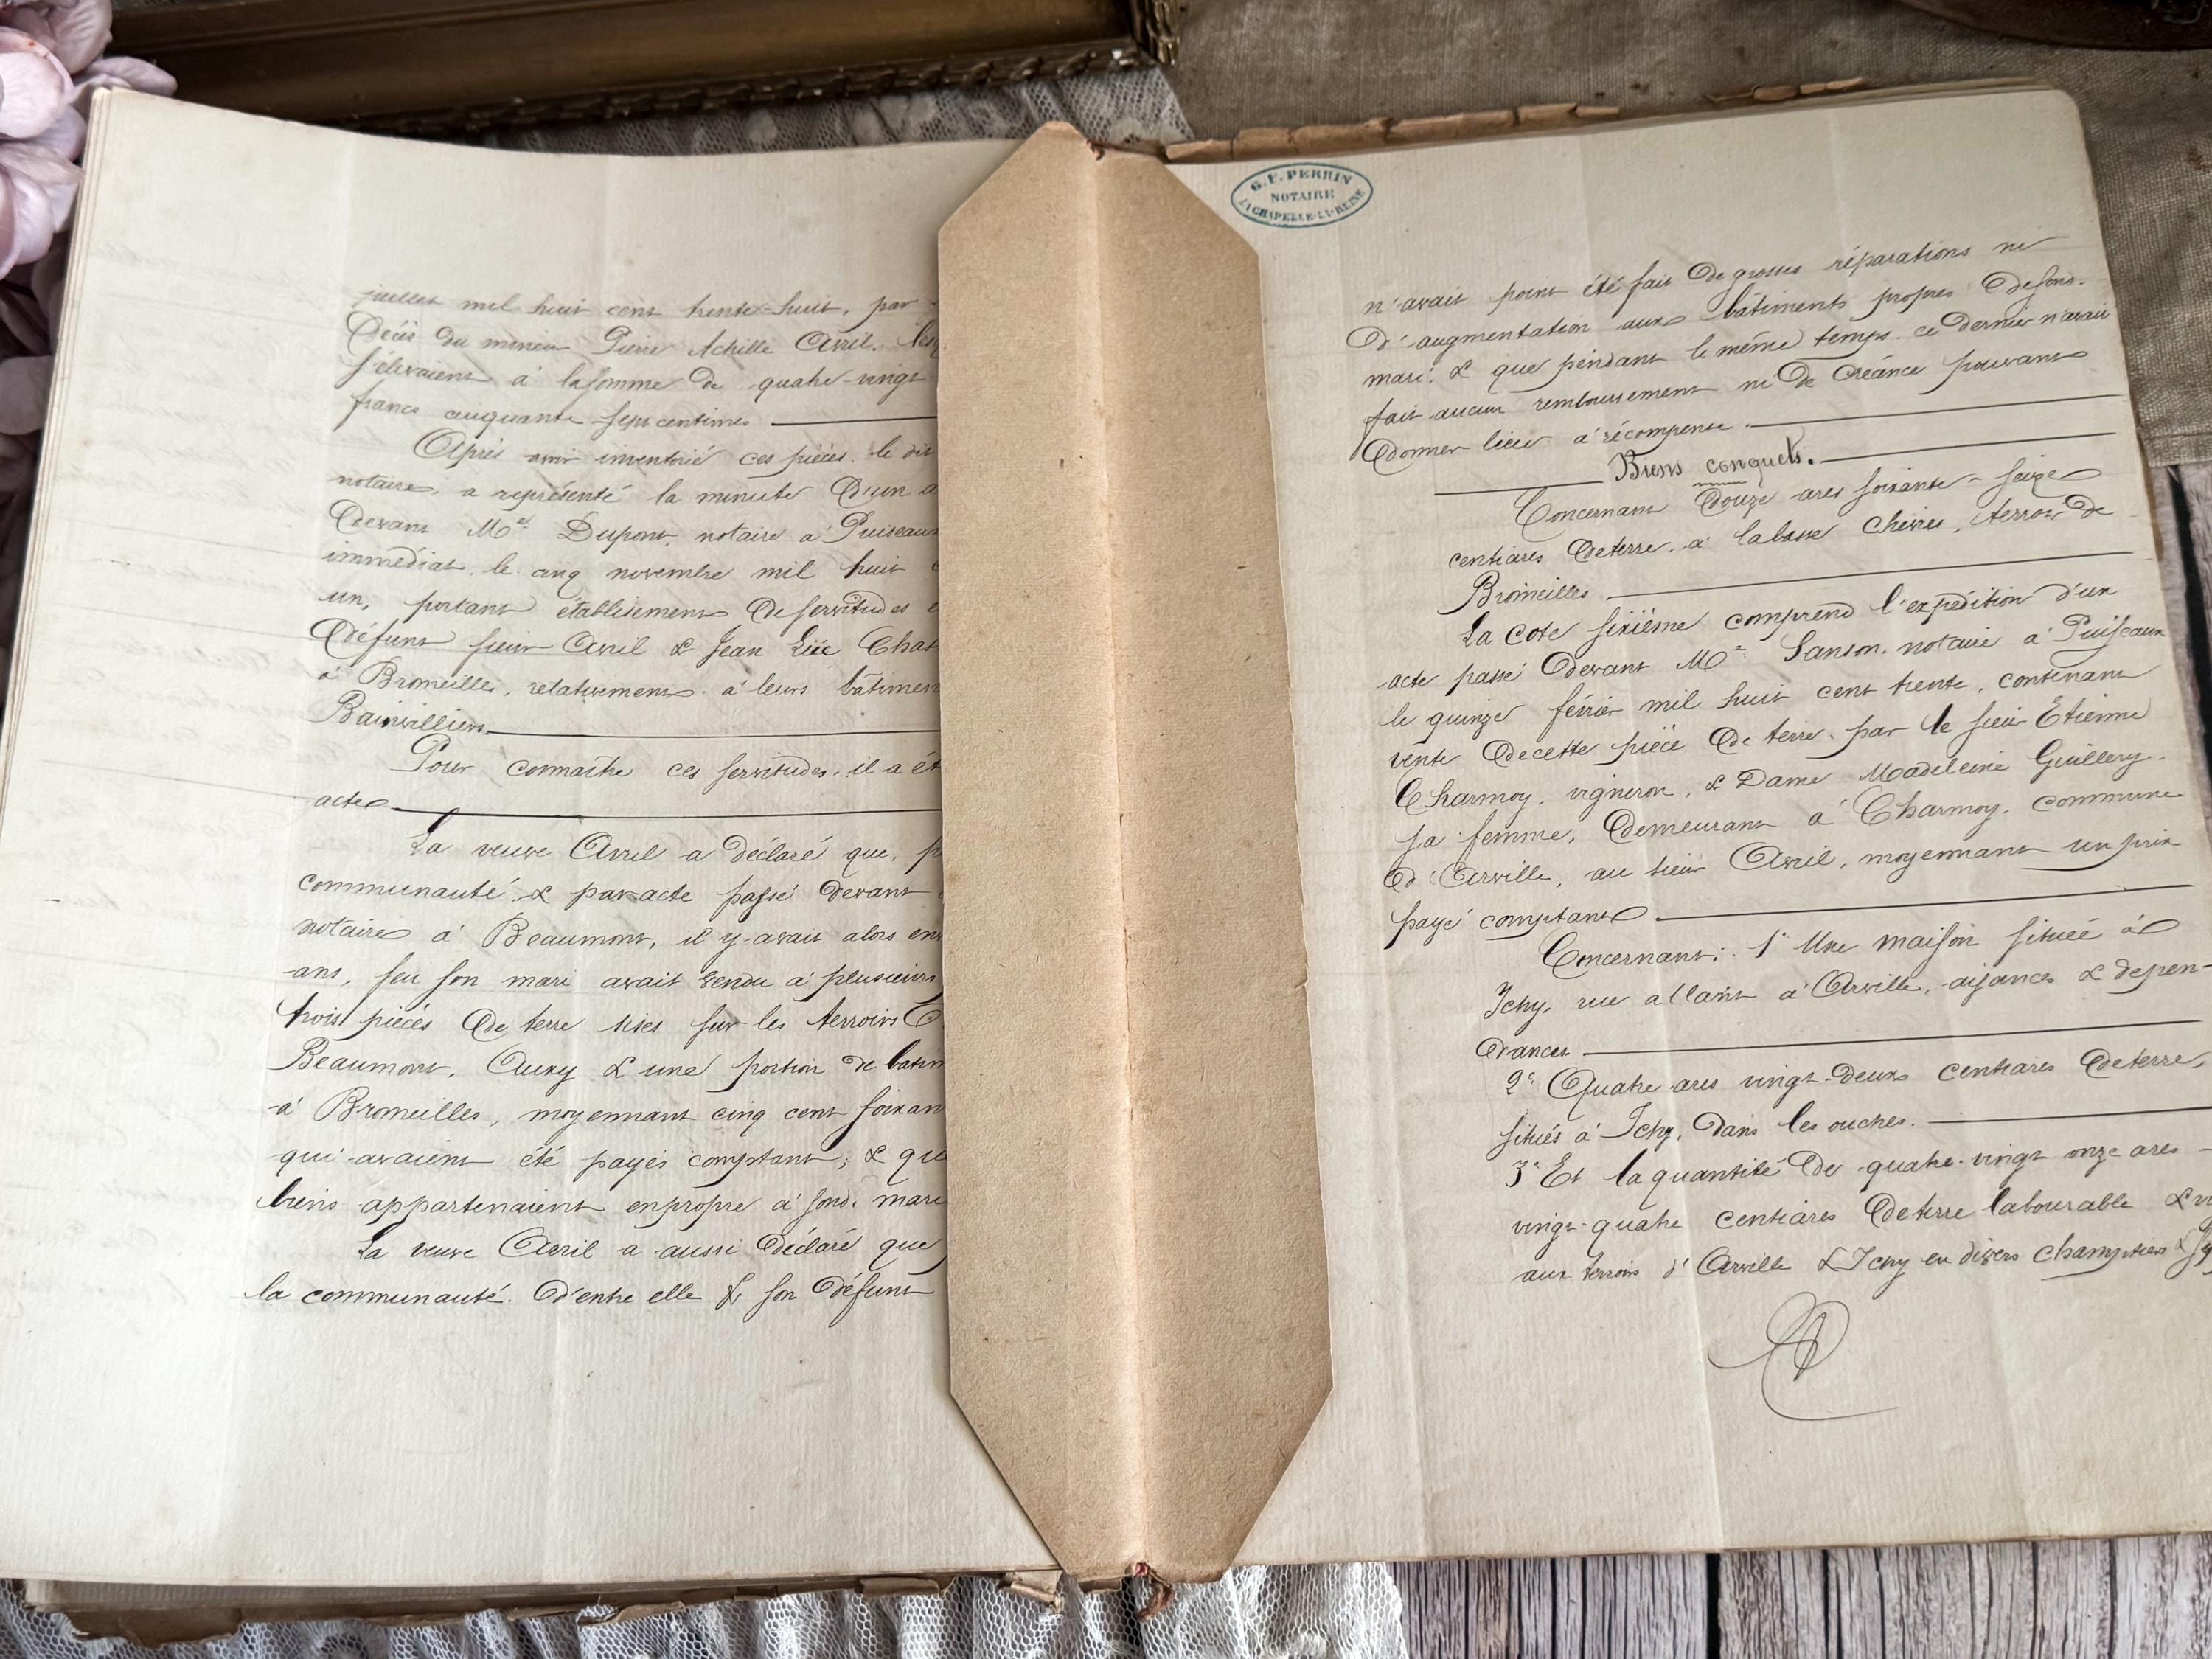 juillet mil huit cent trente-huit, par
Décès du mineur Pierre Achille Avril.
s'élevaient à la somme de quatre-vingt
francs cinquante-sept centimes
Après avoir inventorié ces pièces, le dit
notaire, a représenté la minute d'un a
devant Me. Dupont, notaire à Puiseaux
immédiat, le cinq novembre mil huit c
un, portant établissement de servitudes e
défunt sieur Avril & Jean Chat
à Bromeilles, relativement à leurs bâtimen
Bainvilliers
Pour connaître ces servitudes, il a ét
acte
La veuve Avril a déclaré que, p
communauté & par acte passé devant
notaire à Beaumont, il y avait alors env
ans, feu son mari avait vendu à plusieurs
trois pièces de terre sises sur les terroirs
Beaumont, Auxy & une portion de batim
à Bromeilles, moyennant cinq cent soixan
qui avaient été payés comptant; & que
biens appartenaient en propre à sond. mari
La veuve Avril a aussi déclaré que
la communauté d'entre elle & son défunt
G. F. PERRIN
NOTAIRE
LA CHAPELLE-LA-REINE
n'avait point été fait de grosses réparations ni
d'augmentation aux bâtiments propres de sond.
mari, & que pendant le même temps, ce dernier n'avait
fait aucun remboursement ni de créance pouvant
donner lieu à récompense.
Biens conquets.
Concernant douze ares soixante-seize
centiares de terre, à la basse Chèvres, terroir de
Bromeilles
La cote sixième comprend l'expédition d'un
acte passé devant Me. Sanson, notaire à Puiseaux
le quinze février mil huit cent trente, contenant
vente de cette pièce de terre, par le sieur Etienne
Charmoy, vigneron, & Dame Madeleine Guillery,
sa femme, demeurant à Charmoy, commune
d'Arville, au sieur Avril, moyennant un prix
payé comptant
Concernant: 1° Une maison située à
Ichy, rue allant à Arville, aisances & dépen-
dances
2° Quatre ares vingt-deux centiares de terre,
situés à Ichy, dans les ouches.
3° Et la quantité de quatre-vingt onze ares
vingt-quatre centiares de terre labourable & vi
aux terroirs d'Arville & Ichy en divers champtiers &